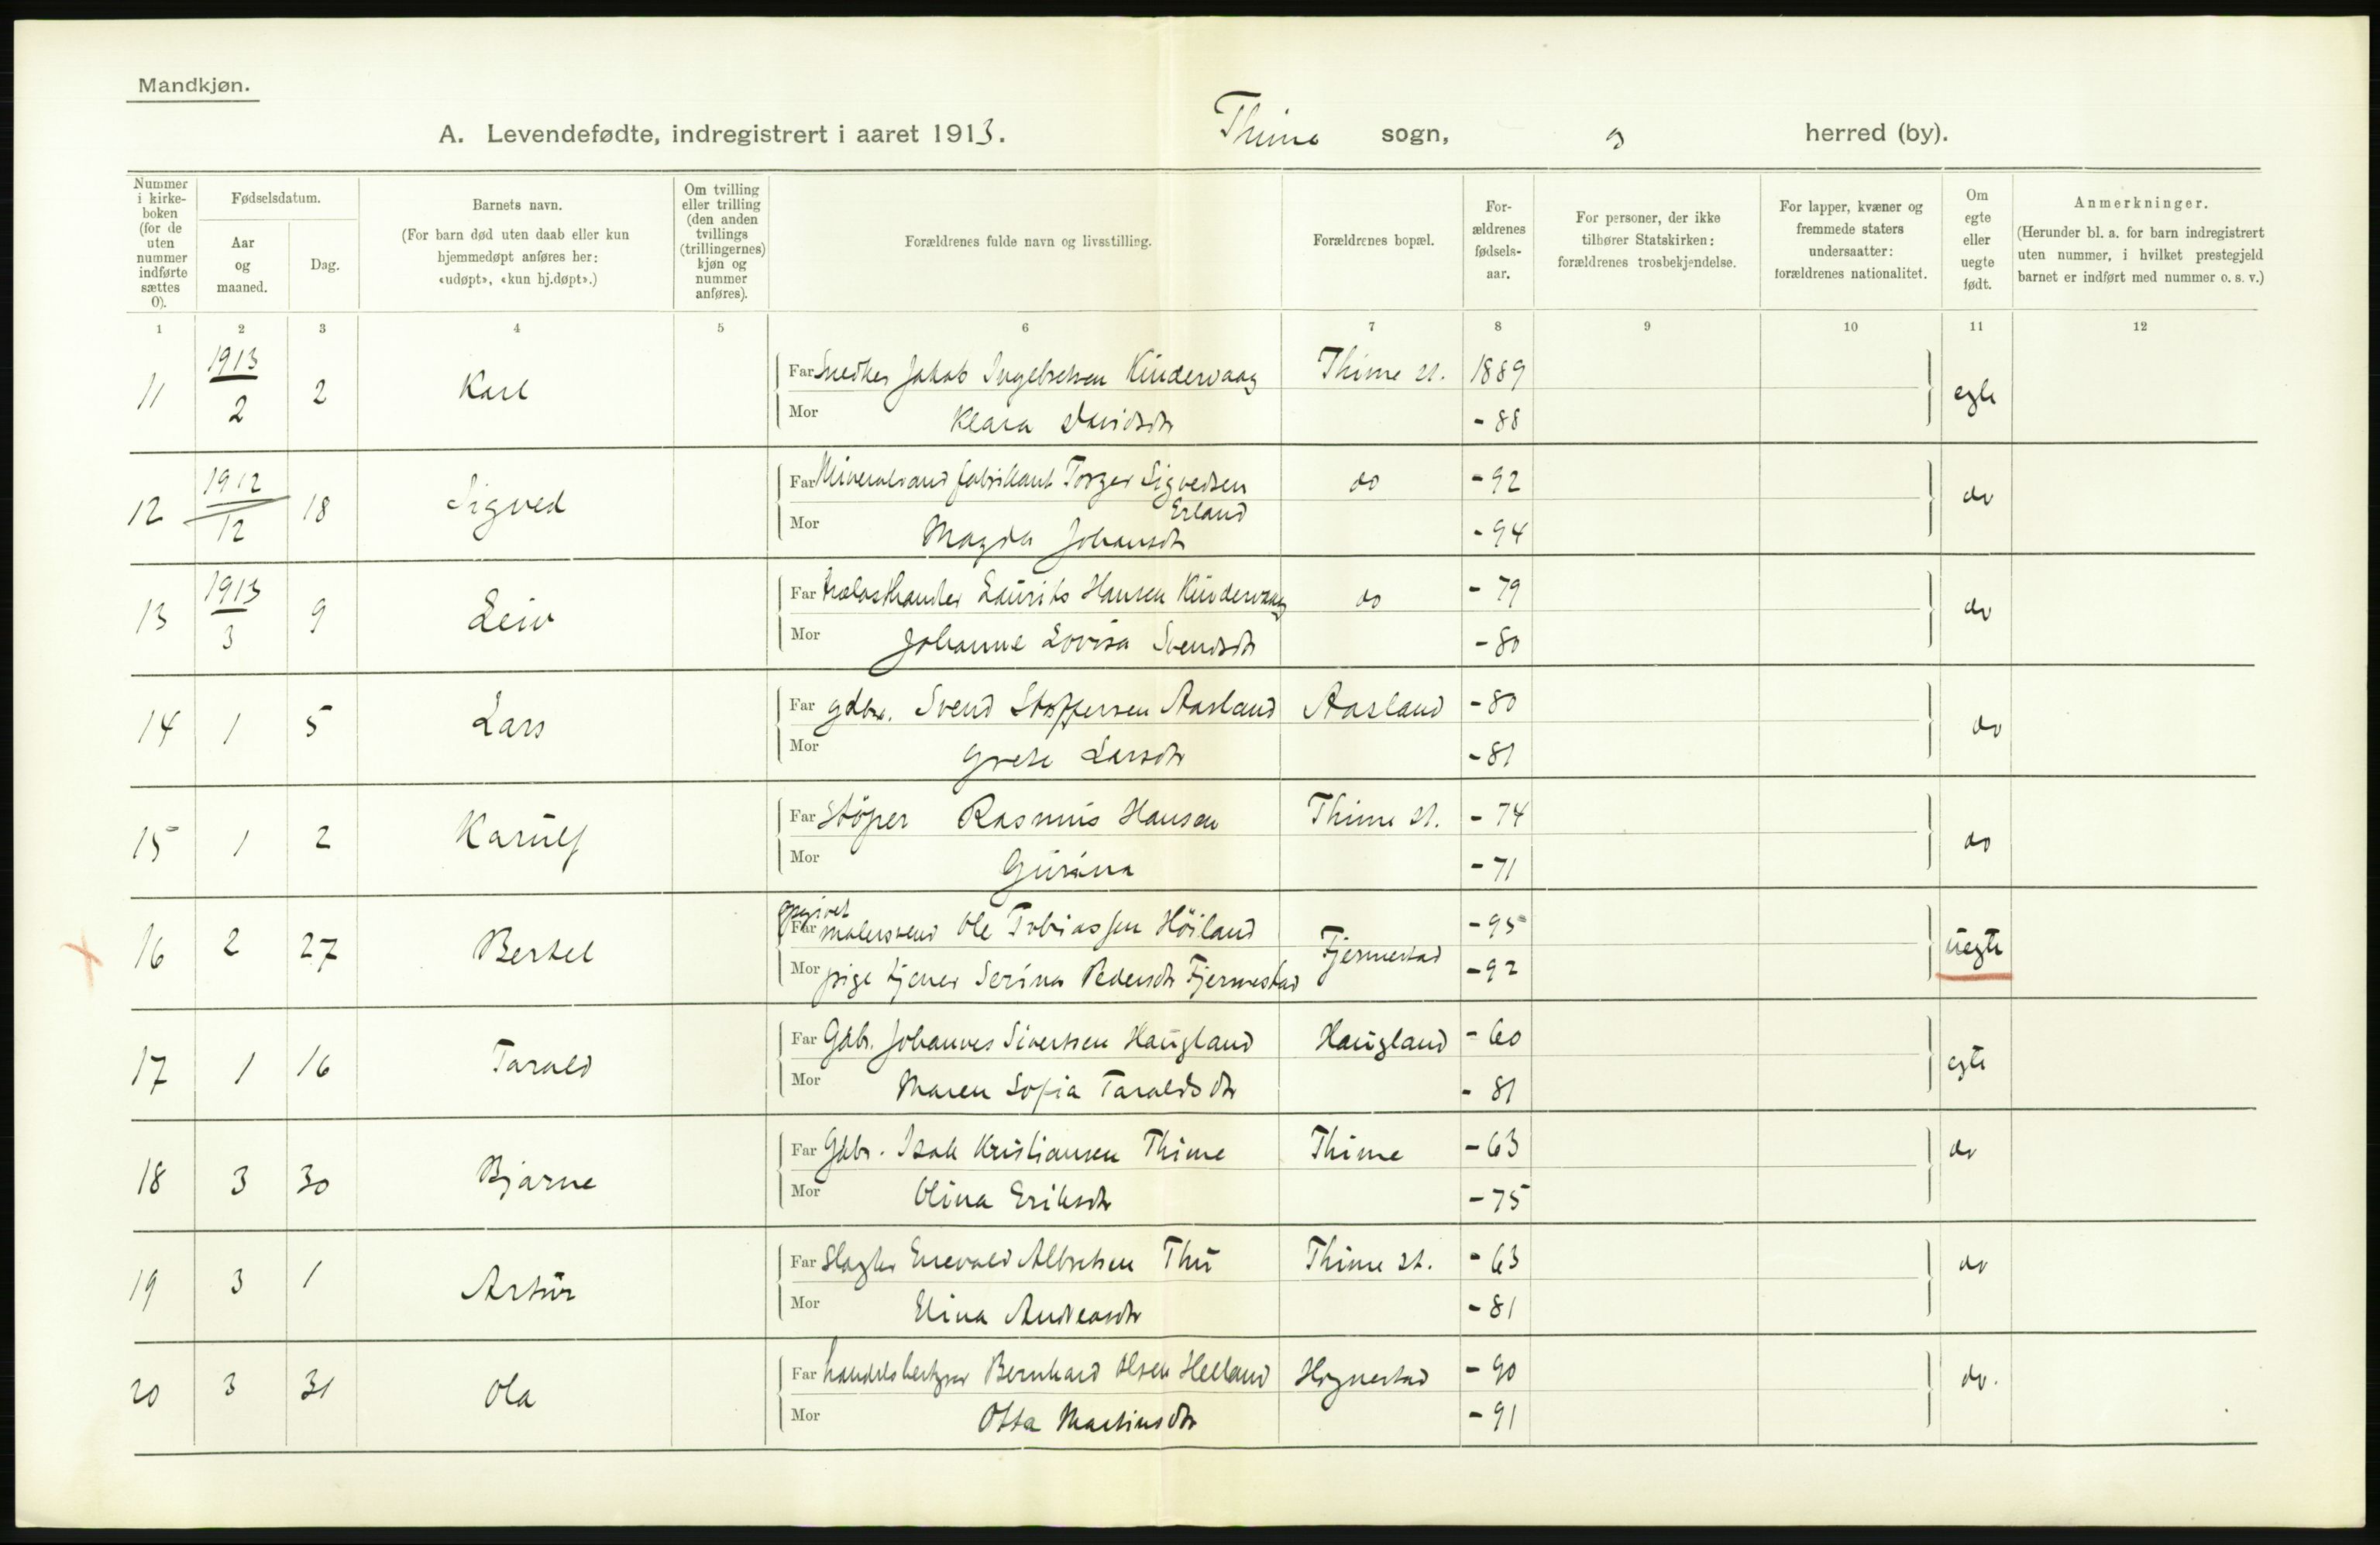 Mandkjøn.
A. Levendefødte, indregistrert i aaret 1913. Thime sogn, herred (by).
Nummer i kirkeboken (for de uten nummer indførte sættes 0).
Fødselsdatum.
Aar og maaned.
Dag.
Barnets navn.
(For barn død uten daab eller kun hjemmedøpt anføres her: «udøpt», «kun hj.døpt».)
Om tvilling eller trilling (den anden tvillings (trillingernes) kjøn og nummer anføres).
Forældrenes fulde navn og livsstilling.
Forældrenes bopæl.
Forældrenes fødselsaar.
For personer, der ikke tilhører Statskirken: forældrenes trosbekjendelse.
For lapper, kvæner og fremmede staters undersaatter: forældrenes nationalitet.
Om egte eller uegte født.
Anmerkninger.
(Herunder bl. a. for barn indregistrert uten nummer, i hvilket prestegjeld barnet er indført med nummer o. s. v.)
1 2 3 4 5 6 7 8 9 10 11 12
11 1913 2 2 Karl Far Snedker Jakob Ingebretsen Kindervaag Thime st. 1889 egte
Mor Klara Davidsdtr -88
12 1912 12 18 Sigved Far Mineralvand fabrikant Torger Sigvedsen Erland do -92 do
Mor Magda Johansdtr -94
13 1913 3 9 Leiv Far trælasthandler Laurits Hansen Kindervaag do -79 do
Mor Johanne Lovisa Svendsdtr -80
14 1 5 Lars Far gdbr. Svend Stoffersen Aasland Aasland -80 do
Mor Grete Larsdtr -81
15 1 2 Karulf Far Støper Rasmus Hansen Thime st. -74 do
Mor Gurina -71
16 2 27 Bertel opgivet Far malersvend Ole Tobiassen Höiland Fjermestad -95 uegte
Mor pige tjener Serina Pedersdtr Fjermestad -92
17 1 16 Tarald Far Gdbr. Johannes Sivertsen Haugland Haugland -60 egte
Mor Maren Sofia Taraldsdtr -81
18 3 30 Bjarne Far Gdbr. Isak Kristiansen Thime Thime -63 do
Mor Olina Eriksdtr -75
19 3 1 Artur Far Slagter Enevald Albretsen Thu Thime st. -63 do
Mor Elina Andreasdtr -81
20 3 31 Ola Far handelsbestyrer Bernhard Olsen Helland Hognestad -90 do.
Mor Otta Martinsdtr -91